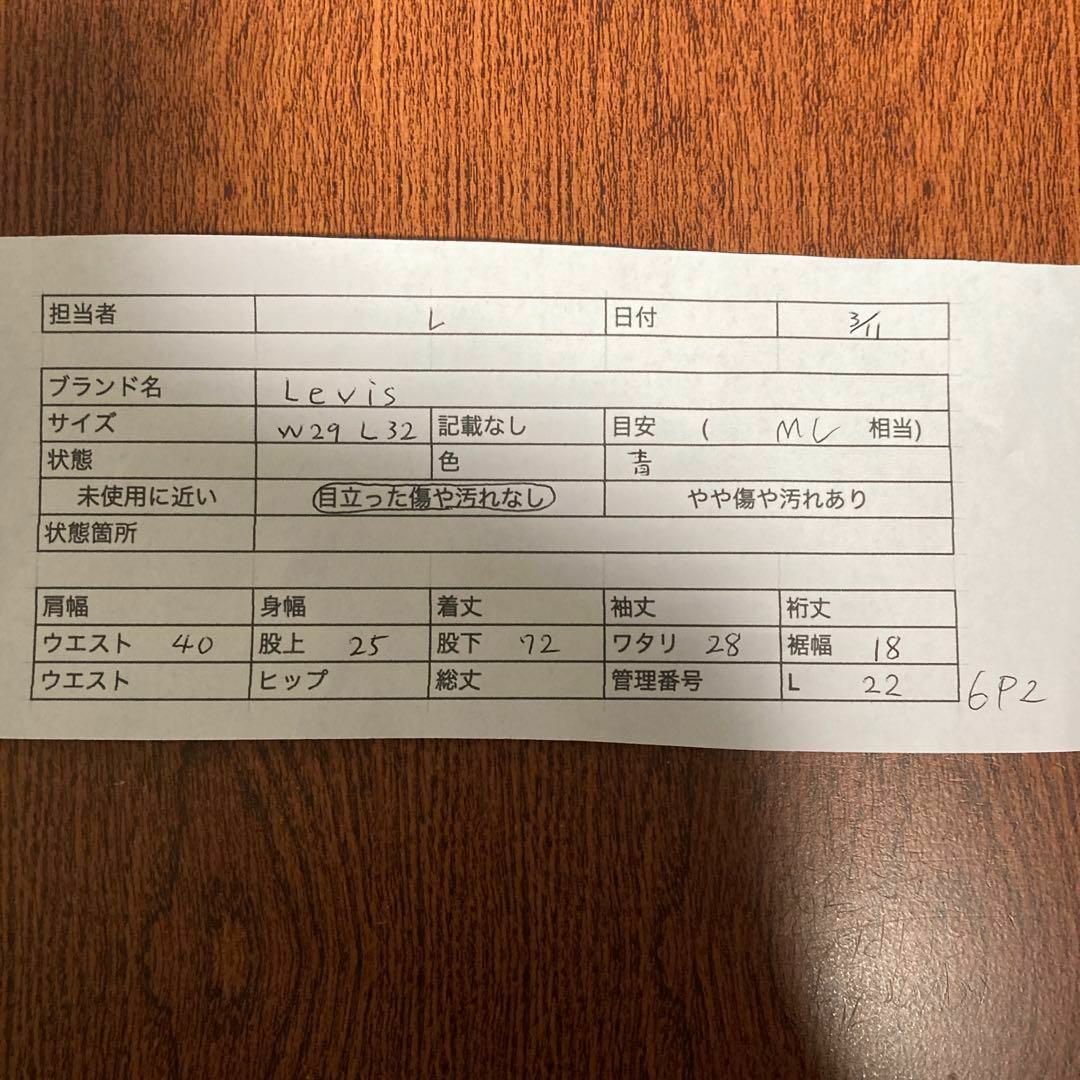 担当者 L 日付 3/11
ブランド名 Levis
サイズ W29 L32 記載なし 目安 ( ML 相当)
状態 色 青
未使用に近い 目立った傷や汚れなし やや傷や汚れあり
状態箇所
肩幅 身幅 着丈 袖丈 裄丈
ウエスト 40 股上 25 股下 72 ワタリ 28 裾幅 18
ウエスト ヒップ 総丈 管理番号 L 22 6P2